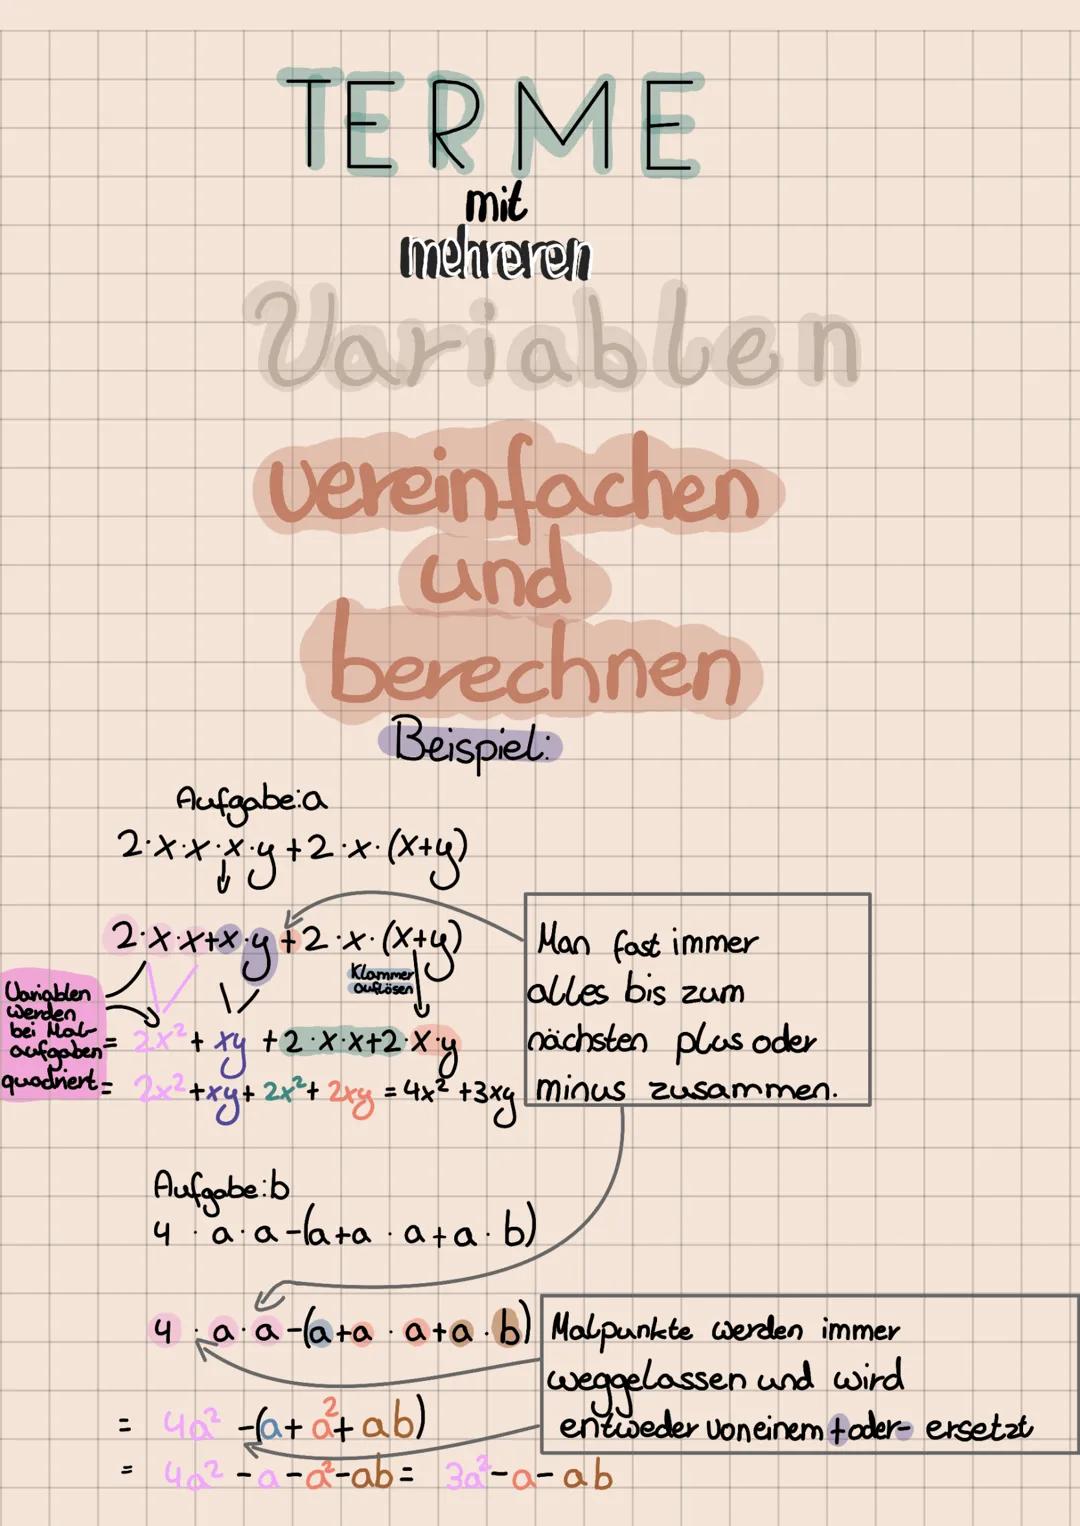 TERME
mit
mehreren
Variablen
vereinfachen
und
berechnen
Beispiel:
Aufgabe:a
2·x·x·x·y+2·x·(x+y)
2·x·x+x·y+2·x·(x+y)
Klammer
auflösen
Variablen
werden
bei Mal-
aufgaben
quadriert
= 2x²+ xy +2·x·x+2·x·y
= 2x²+xy+ 2x²+ 2xy = 4x² +3xy
Man fast immer
alles bis zum
nächsten plus oder
minus zusammen.
Aufgabe:b
4 · a·a-(a+a · a+a·b)
4 · a·a-(a+a · a+a·b)
Malpunkte werden immer
weggelassen und wird
entweder von einem + oder - ersetzt
= 4a² -(a+ a²+ ab)
= 4a² -a-a²-ab= 3a²-a-ab